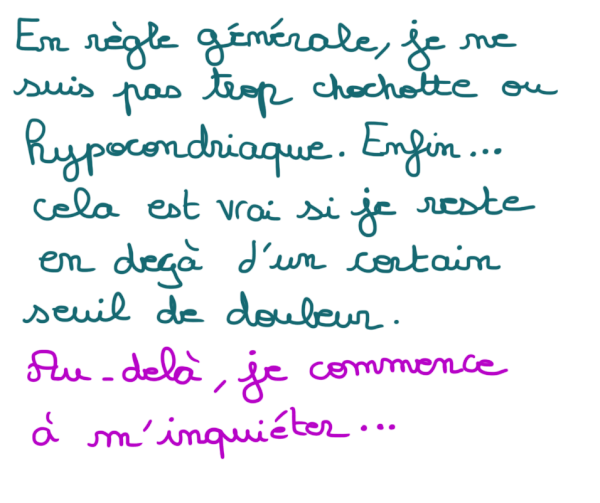 En règle générale, je ne
suis pas trop chochotte ou
hypocondriaque. Enfin...
cela est vrai si je reste
en deçà d'un certain
seuil de douleur.
Au-delà, je commence
à m'inquiéter...